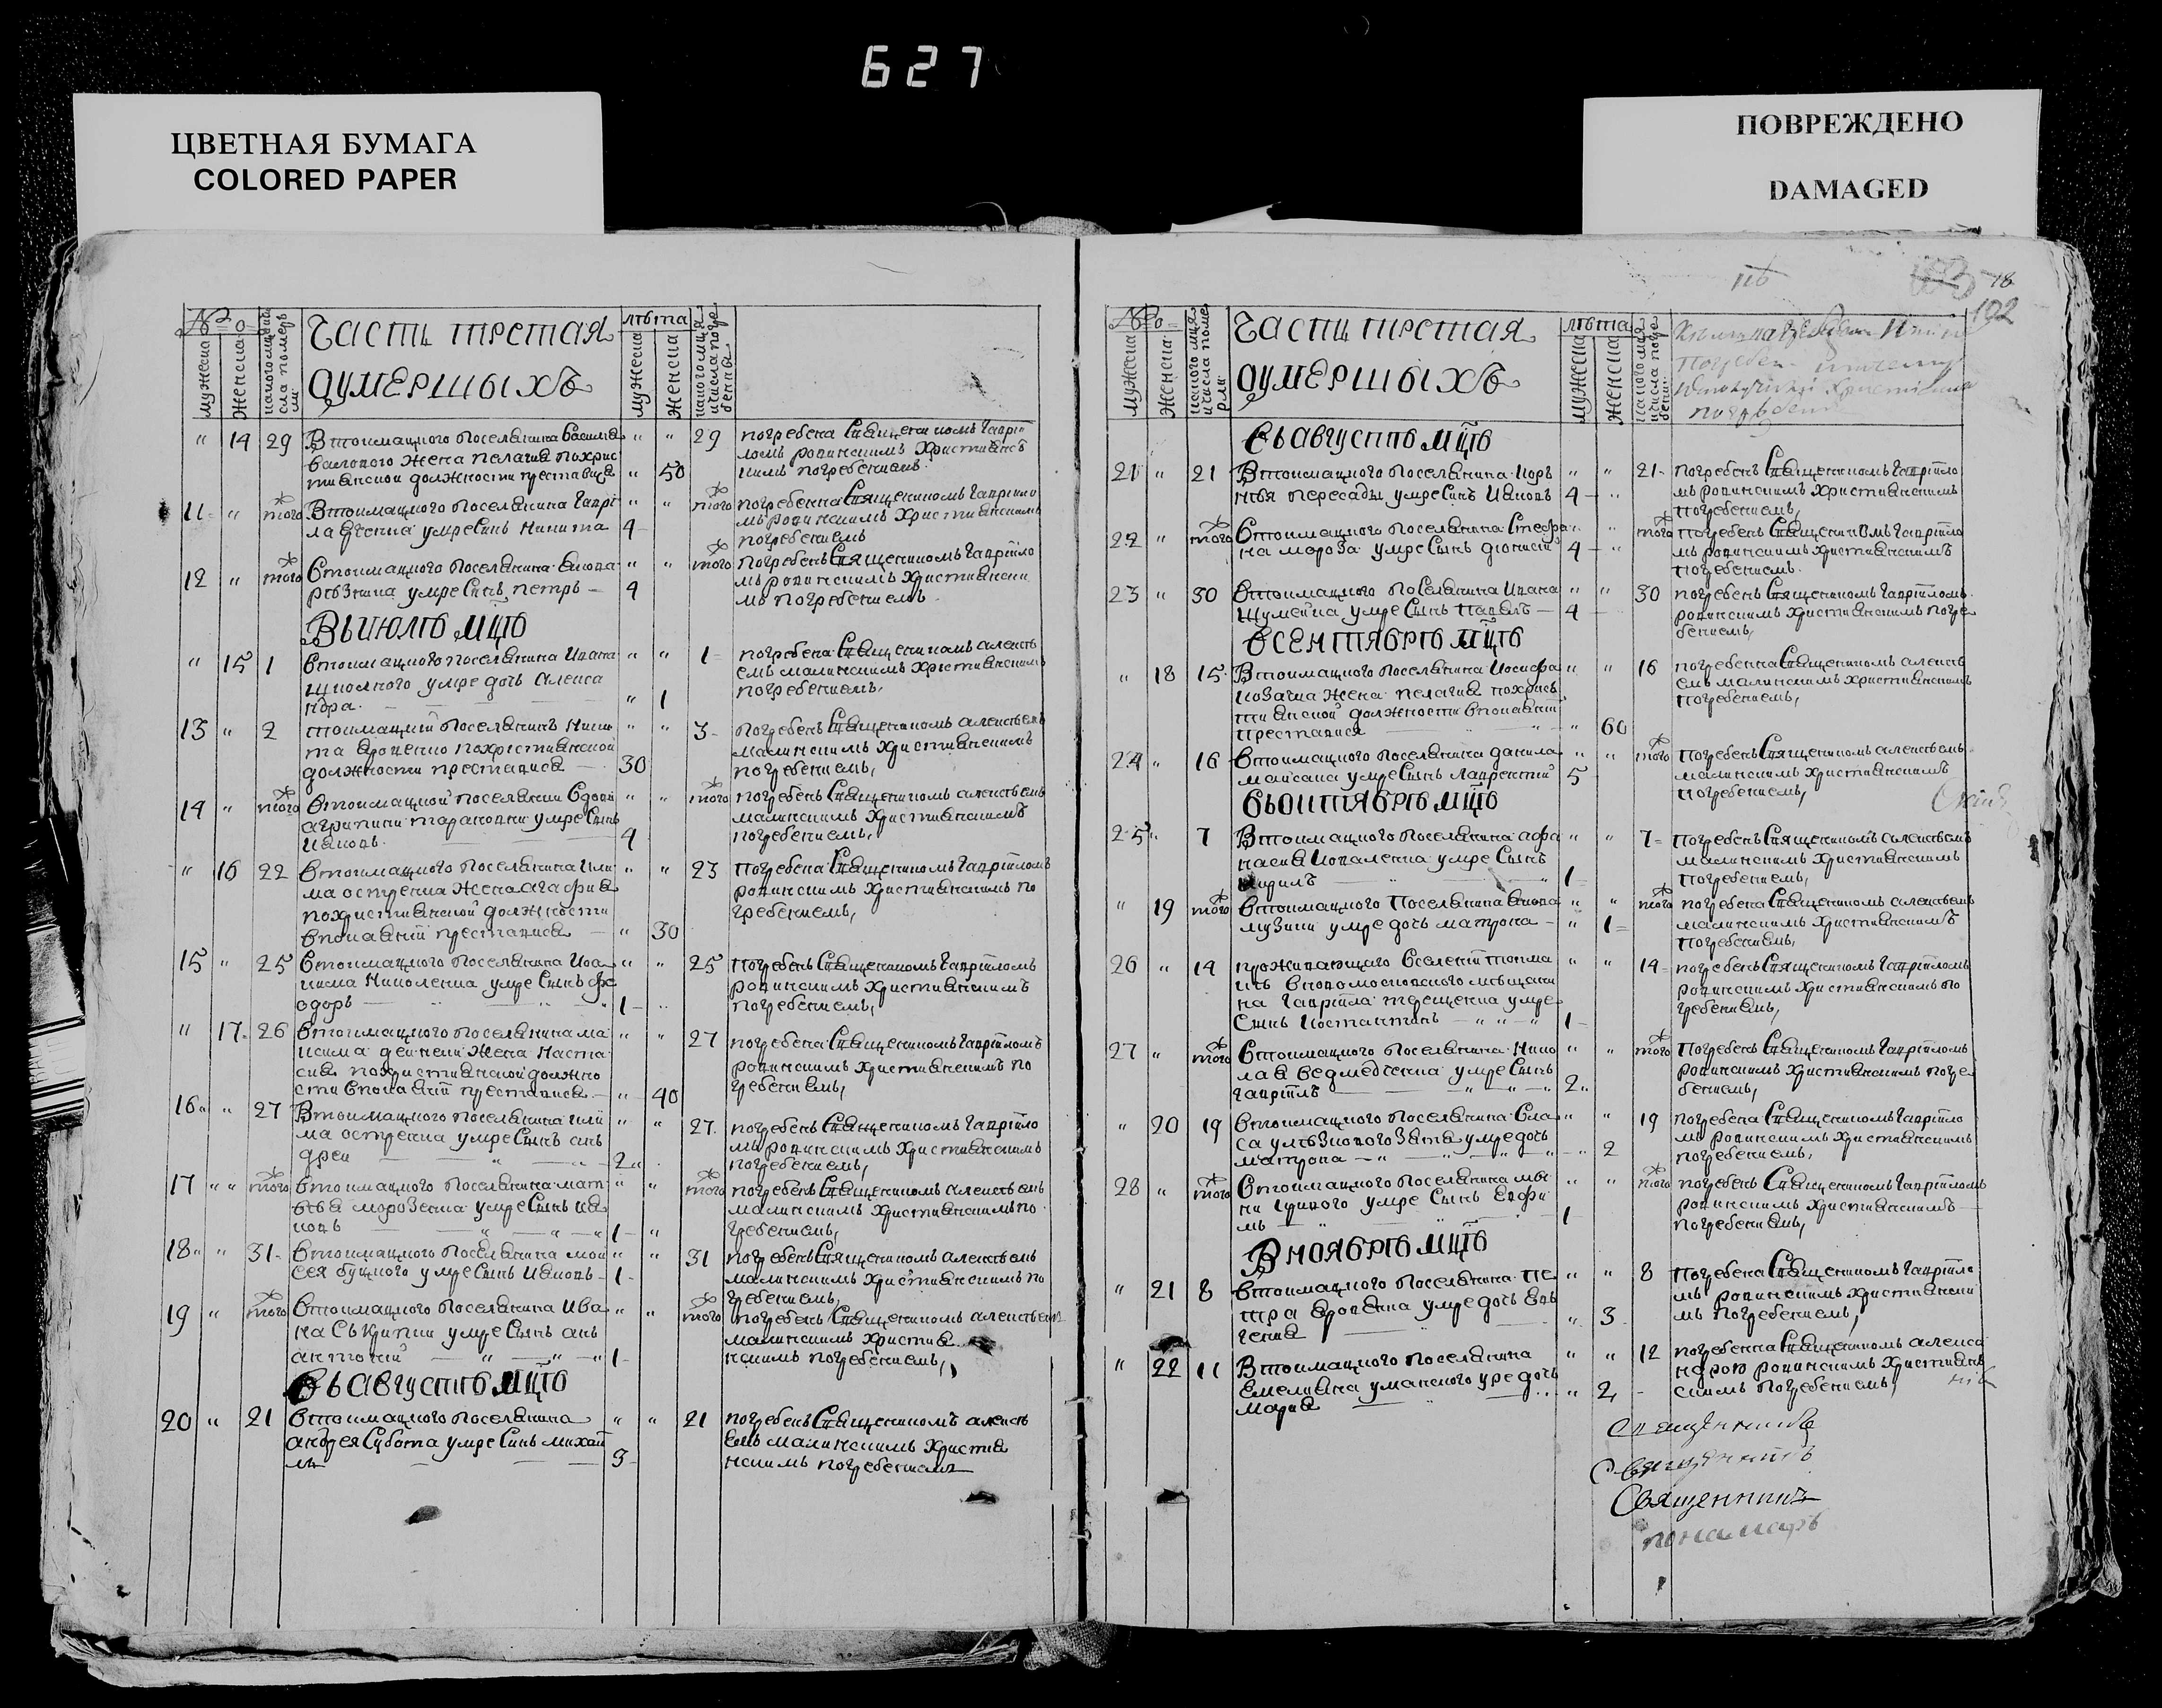 627
ЦВЕТНАЯ БУМАГА
COLORED PAPER
ПОВРЕЖДЕНО
DAMAGED
№
мужеска
женска
Часть третая
О умершыхъ
лѣта
мужеска
женска
" 14 29 В токмацкого поселянина
жена пелагиа по хрис
тианской должности преставися " 50
29 погребена Священикомъ Гаврiи
ломъ ровинскимъ Христианс
кимъ погребениемъ
11 " того В токмацкого поселянина Гаврі
ла умре Синъ Никита 4
того погребенна Священикомъ Гавріило
мъ ровинскимъ Христианскимъ
погребениемъ
12 " того В токмацкого поселянина
умре Синъ петръ 4
того погребенъ Священикомъ Гавріило
мъ ровинскимъ Христиански
мъ погребениемъ
В июлѣ мцѣ
" 15 1 В токмацкого поселянина Ивана
умре дочь Алекса
ндра " 1
1 погребена Священикомъ алексѣ
емъ малинскимъ Христианскимъ
погребениемъ,
13 " 2 токмацкий поселянинъ Ники
та по христианской
должности преставися 30
3 погребенъ Священикомъ алексѣемъ
малинскимъ Христианскимъ
погребениемъ,
14 " того В токмацкой поселянки вдови
агрипини умре Синъ
Иаковъ 4
того погребенъ Священикомъ алексѣемъ
малинскимъ Христианскимъ
погребениемъ,
" 16 22 В токмацкого поселянина Кли
ма остренка жена агафиа
по христианской должности
в покаяніи преставися " 30
23 погребена Священикомъ Гавріиломъ
ровинскимъ Христианскимъ по
гребениемъ,
15 " 25 В токмацкого поселянина Иоа
кима Николенка умре Синъ фе
одоръ 1
25 погребенъ Священикомъ Гавріиломъ
ровинскимъ Христианскимъ
погребениемъ,
" 17 26 В токмацкого поселянина ма
ксима дейнеки жена Наста
сиа по христианской должно
сти в покаяніи преставися " 40
27 погребена Священикомъ Гавріиломъ
ровинскимъ Христианскимъ по
гребениемъ,
16 " 27 В токмацкого поселянина Кли
ма остренка умре Синъ ан
дрей 2
27 погребенъ Священикомъ Гавріило
мъ ровинскимъ Христианскимъ
погребениемъ,
17 " " того В токмацкого поселянина мат
вѣа морозенка умре Синъ иа
ковъ 1
того погребенъ Священикомъ алексѣемъ
малинскимъ Христианскимъ по
гребениемъ,
18 " 31 В токмацкого поселянина мои
сея буцкого умре Синъ Иаковъ 1
31 погребенъ Священикомъ алексѣемъ
малинскимъ Христианскимъ по
гребениемъ,
19 " того В токмацкого поселянина Ива
на Скрипки умре Синъ ан
антоний 1
того погребенъ Священикомъ алексѣемъ
малинскимъ Христиа
нскимъ погребениемъ,
Въ августѣ мцѣ
20 " 21 В токмацкого поселянина
андрея Субота умре Синъ михаи
лъ 3
21 погребенъ Священикомъ алексѣ
емъ малинскимъ Христиа
нскимъ погребениемъ
116
78
192
№
мужеска
женска
Часть третая
О умершыхъ
лѣта
мужеска
женска
Въ августѣ мцѣ
21 " 21 В токмацкого поселянина Кор
нѣя пересады умре Синъ Иаковъ 4
21 погребенъ Священикомъ Гавріило
мъ ровинскимъ Христианскимъ
погребениемъ,
22 " того В токмацкого поселянина Стефа
на мороза умре Синъ дионисий 4
того погребенъ Священикомъ Гавріило
мъ ровинскимъ Христианскимъ
погребениемъ.
23 " 30 В токмацкого поселянина Ивана
Шумейка умре Синъ павелъ 4
30 погребенъ Священикомъ Гавріиломъ
ровинскимъ Христианскимъ погре
бениемъ,
В сентябрѣ мцѣ
" 18 15 В токмацкого поселянина Иосифа
козачка жена пелагиа по хрис
тианской должности в покаяніи
преставися " 60
16 погребенна Священикомъ алексѣ
емъ малинскимъ Христианскимъ
погребениемъ,
24 " 16 В токмацкого поселянина данила
умре Синъ лаврентий 5
того погребенъ Священикомъ алексѣемъ
малинскимъ Христианскимъ
погребениемъ,
Въ октябрѣ мцѣ
25 " 7 В токмацкого поселянина афа
насиа Коваленка умре Синъ
кирилъ 1
7 погребенъ Священикомъ алексѣемъ
малинскимъ Христианскимъ
погребениемъ,
" 19 того В токмацкого поселянина
музики умре дочь матрона " 1
того погребена Священикомъ алексѣемъ
малинскимъ Христианскимъ
погребениемъ,
26 " 14 проживающаго в селеніи токма
цкѣ в новомосковского мѣщани
на Гавріила терещенка умре
Синъ Костантинъ 1
14 погребенъ Священикомъ Гавріиломъ
ровинскимъ Христианскимъ по
гребениемъ,
27 " того В токмацкого поселянина Нико
лаа ведмеденка умре Синъ
гавріилъ 2
того погребенъ Священикомъ Гавріиломъ
ровинскимъ Христианскимъ погре
бениемъ,
" 20 19 В токмацкого поселянина Вла
са зята умре дочь
матрона " 2
19 погребена Священикомъ Гавріило
мъ ровинскимъ Христианскимъ
погребениемъ,
28 " того В токмацкого поселянина
умре Синъ Евфи
мъ 1
того погребенъ Священикомъ Гавріиломъ
ровинскимъ Христианскимъ
погребениемъ,
В ноябрѣ мцѣ
" 21 8 В токмацкого поселянина пе
тра умре дочь Ев
гениа " 3
8 погребена Священикомъ Гавріило
мъ ровинскимъ Христиански
мъ погребениемъ,
" 22 11 В токмацкого поселянина
Емелиана уманского умре дочь
мариа " 2
12 погребенна Священикомъ алекса
ндромъ ровинскимъ Христиан
скимъ погребениемъ,
Священникъ
Священникъ
Священникъ
понамарь